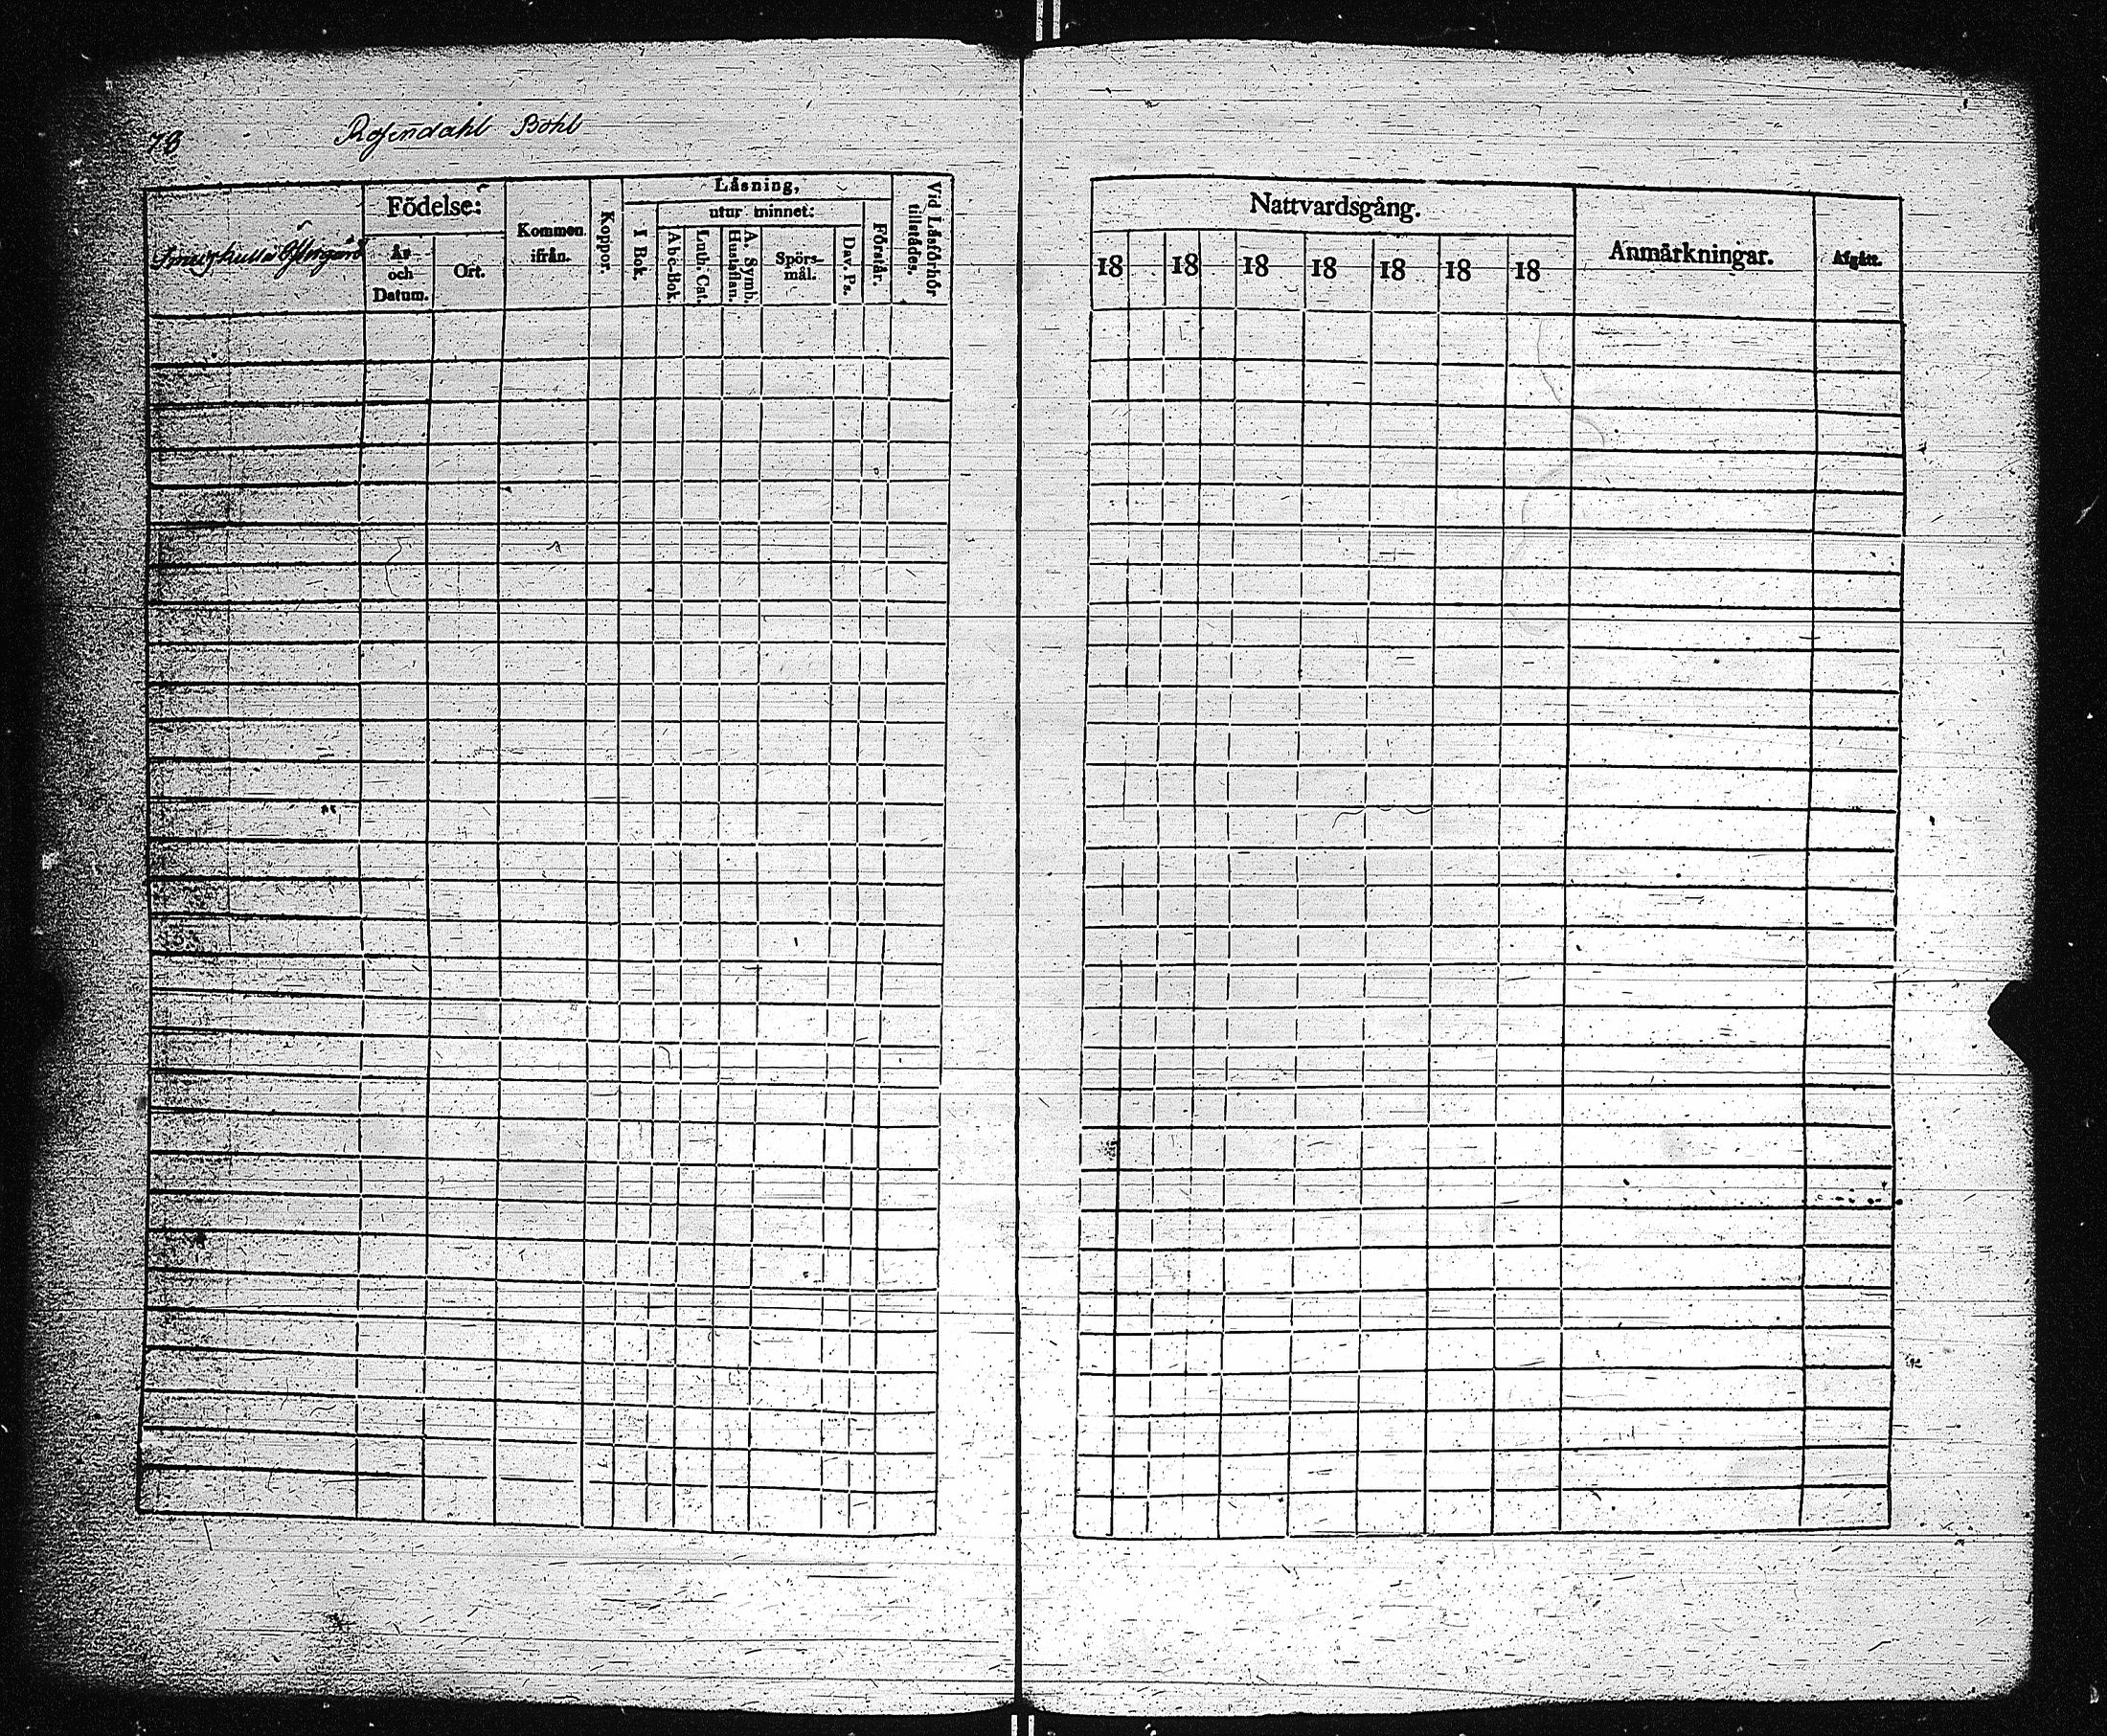 78 Rosendahl Bohl
Födelse:
År och Datum.
Ort.
Kommen ifrån.
Koppor.
Låsning,
I Bok.
utur minnet:
Abc-Bok.
Luth. Cat.
A. Symb. Hustaflan.
Spörs-mål.
Dav. Ps.
Förstår.
Vid Låsförhör tillstådes.
Nattvardsgång.
18 18 18 18 18 18 18
Anmärkningar.
Afgått.